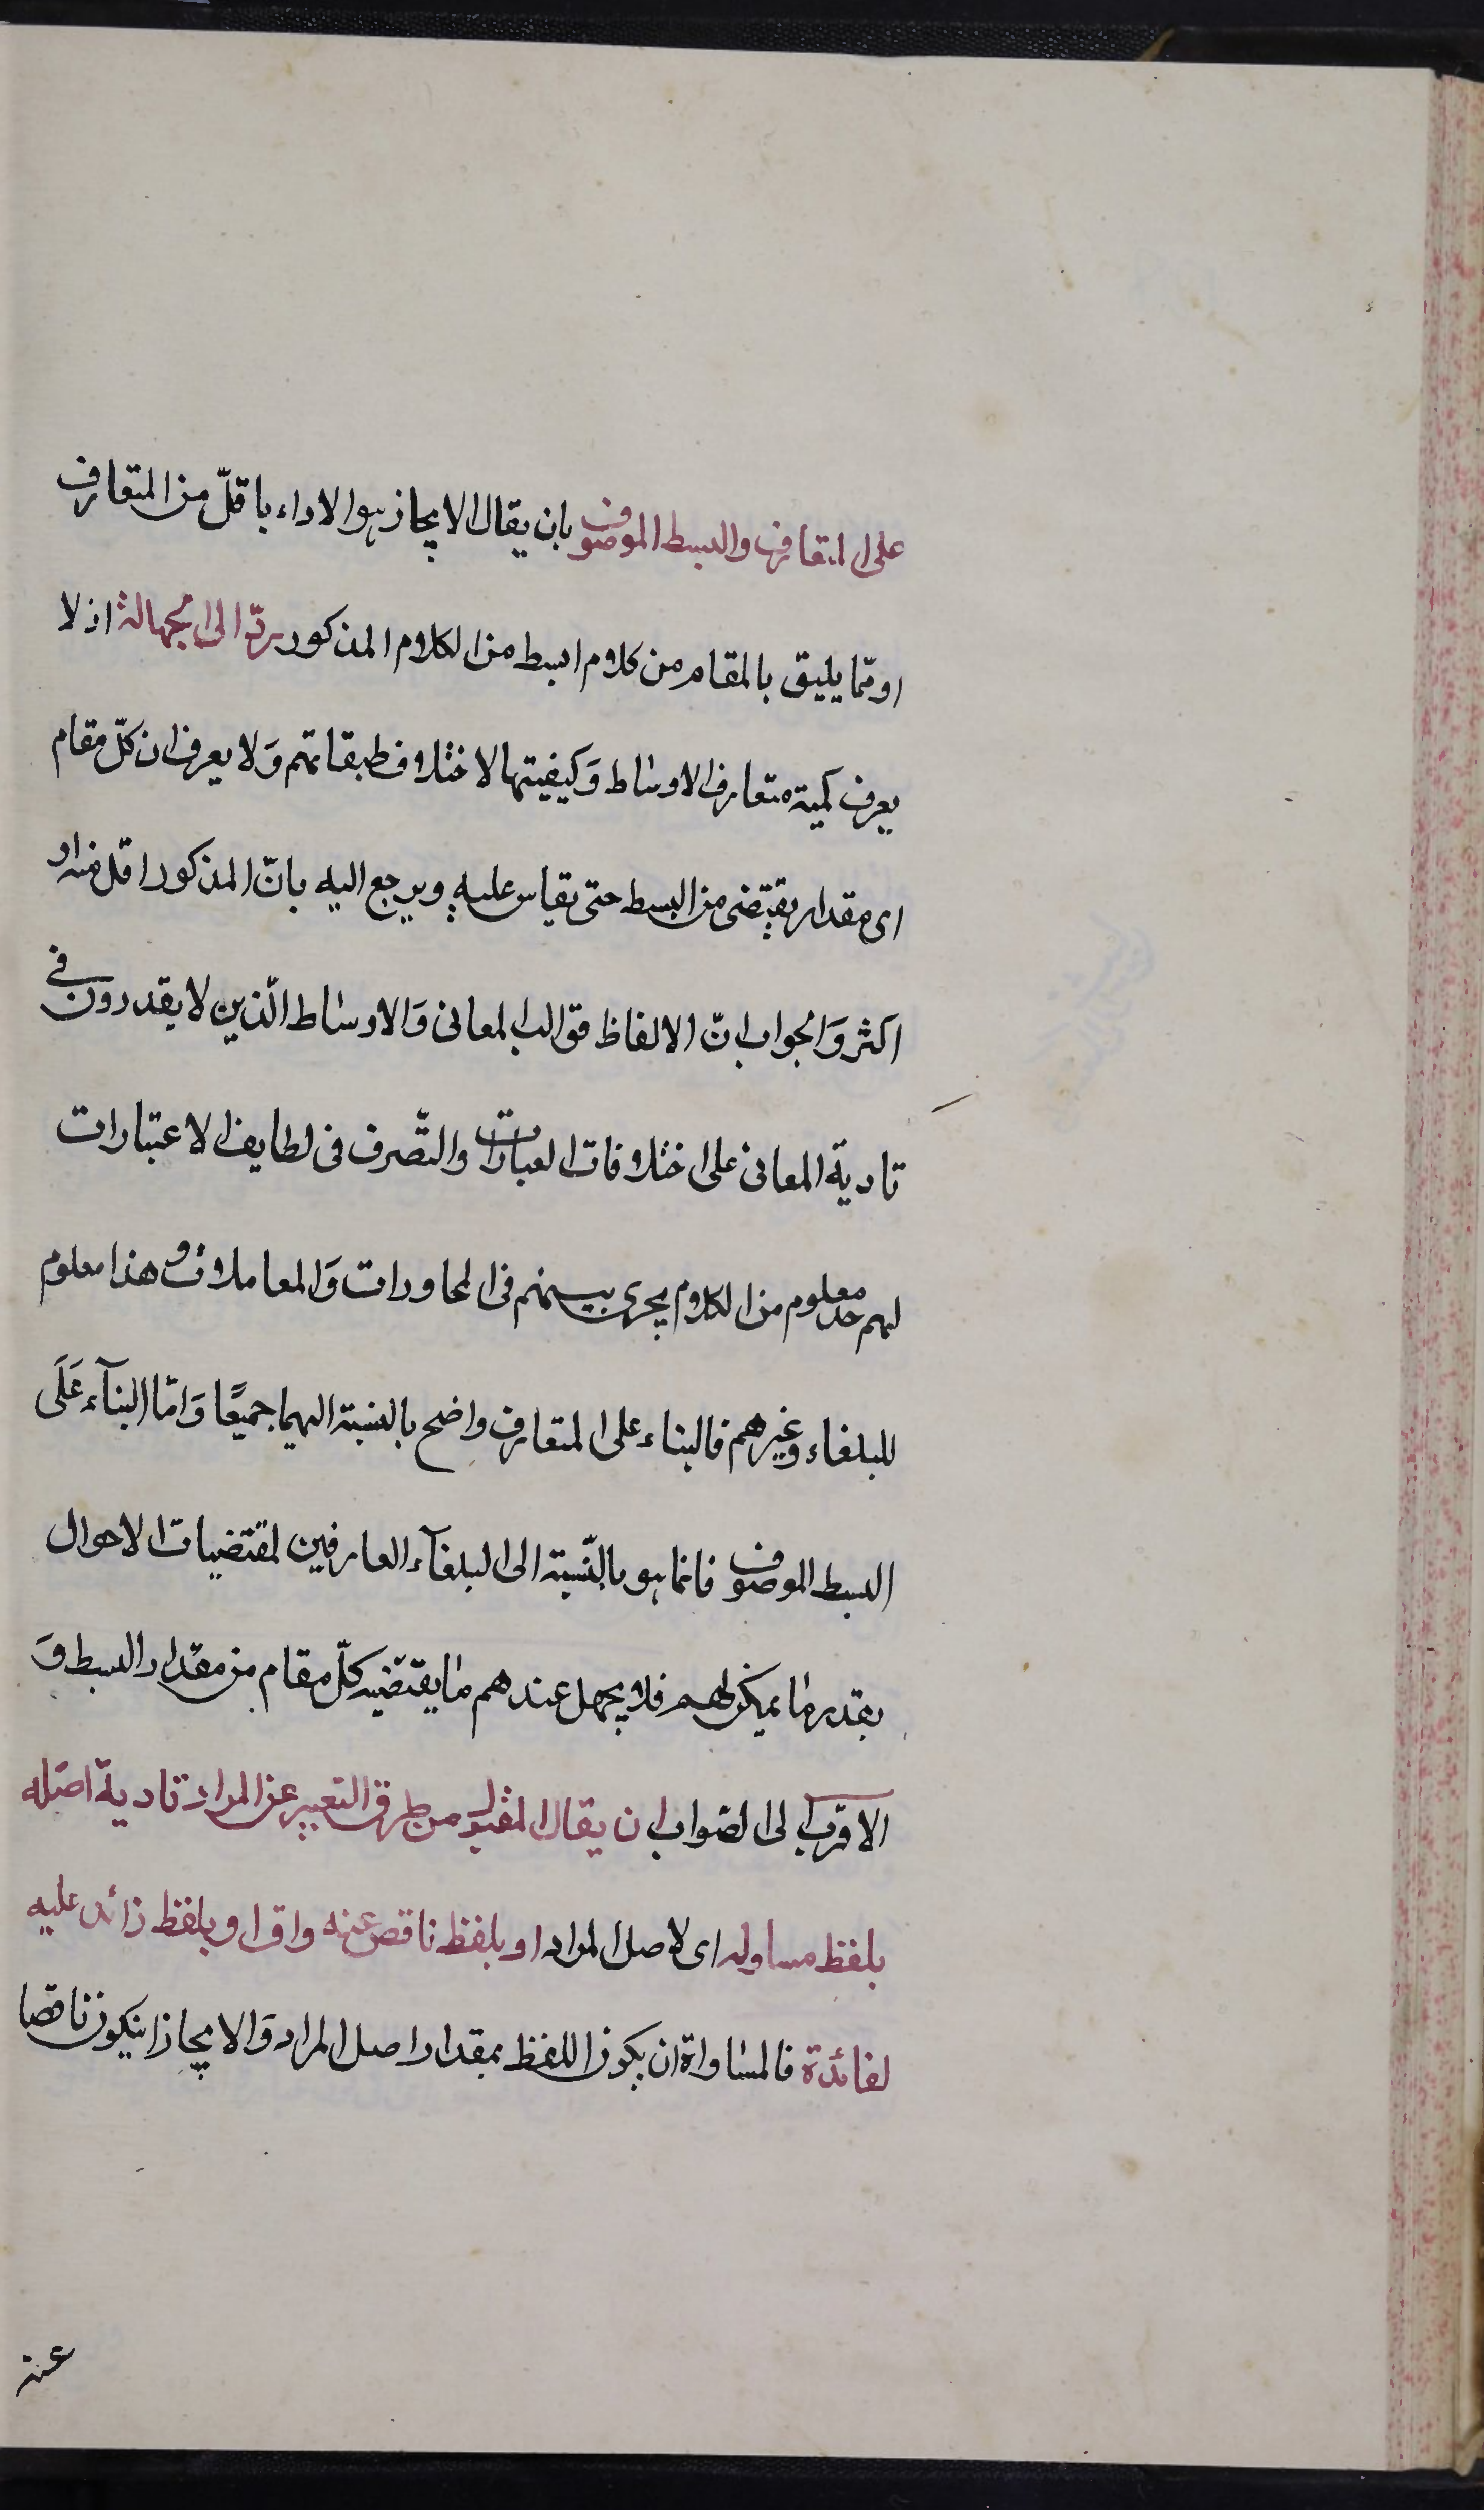 على المتعارف والبسط الموصوف بان يقال الايجاز هو الاداء باقلّ من المتعارف
او ممّا يليق بالمقام من كلام ابسط من الكلام المذكور ردّ الى الجهالة اذ لا
يعرف كمية متعارف الاوساط وَكيفيتها لاختلاف طبقاتهم وَلا يعرف ان كلّ مقام
اى مقدار يقتضى من البسط حتى يقاس عليه ويرجع اليه بانّ المذكور اقل منه او
اكثر وَالجواب انّ الالفاظ قوالب المعانى وَالاوساط الّذين لا يقدرون فى
تادية المعانى على اختلافات العبارات والتّصرف فى لطايف الاعتبارات
لهم حد معلوم من الكلام يجرى بينهم فى المحاورات وَالمعاملات وهذا معلوم
للبلغاء وغيرهم فالبناء على المتعارف واضح بالنسبة اليهما جميعًا وَامّا البنآء عَلَى
البسط الموصوف فانما هو بالنّسبة الى البلغآء العارفين لمقتضيات الاحوال
بقدر ما يمكن لهم فلا يجهل عندهم ما يقتضيه كلّ مقام من مقدار البسط وَ
الاقرب الى الصّواب ان يقال المقبول من طرق التعبير عن المراد تادية اصله
بلفظ مساو له اى لاصل المراد او بلفظ ناقص عنه واف او بلفظ زائد عليه
لفائدة فالمساواة ان يكون اللفظ بمقدار اصل المراد وَالايجاز ان يكون ناقصا
عنه